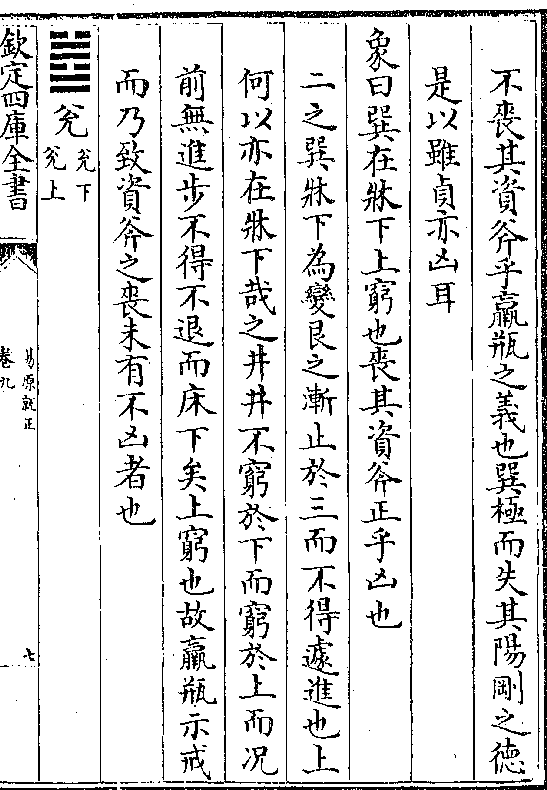 不喪其資斧乎羸瓶之義也巽極而失其陽剛之德
是以雖貞亦凶耳
象曰巽在牀下上窮也喪其資斧正乎凶也
二之巽牀下為變艮之漸止於三而不得遽進也上
何以亦在牀下哉之井井不窮於下而窮於上而况
前無進步不得不退而床下矣上窮也故羸瓶示戒
而乃致資斧之喪未有不凶者也
䷹兊兊下兊上
欽定四庫全書
易原就正
卷九
七